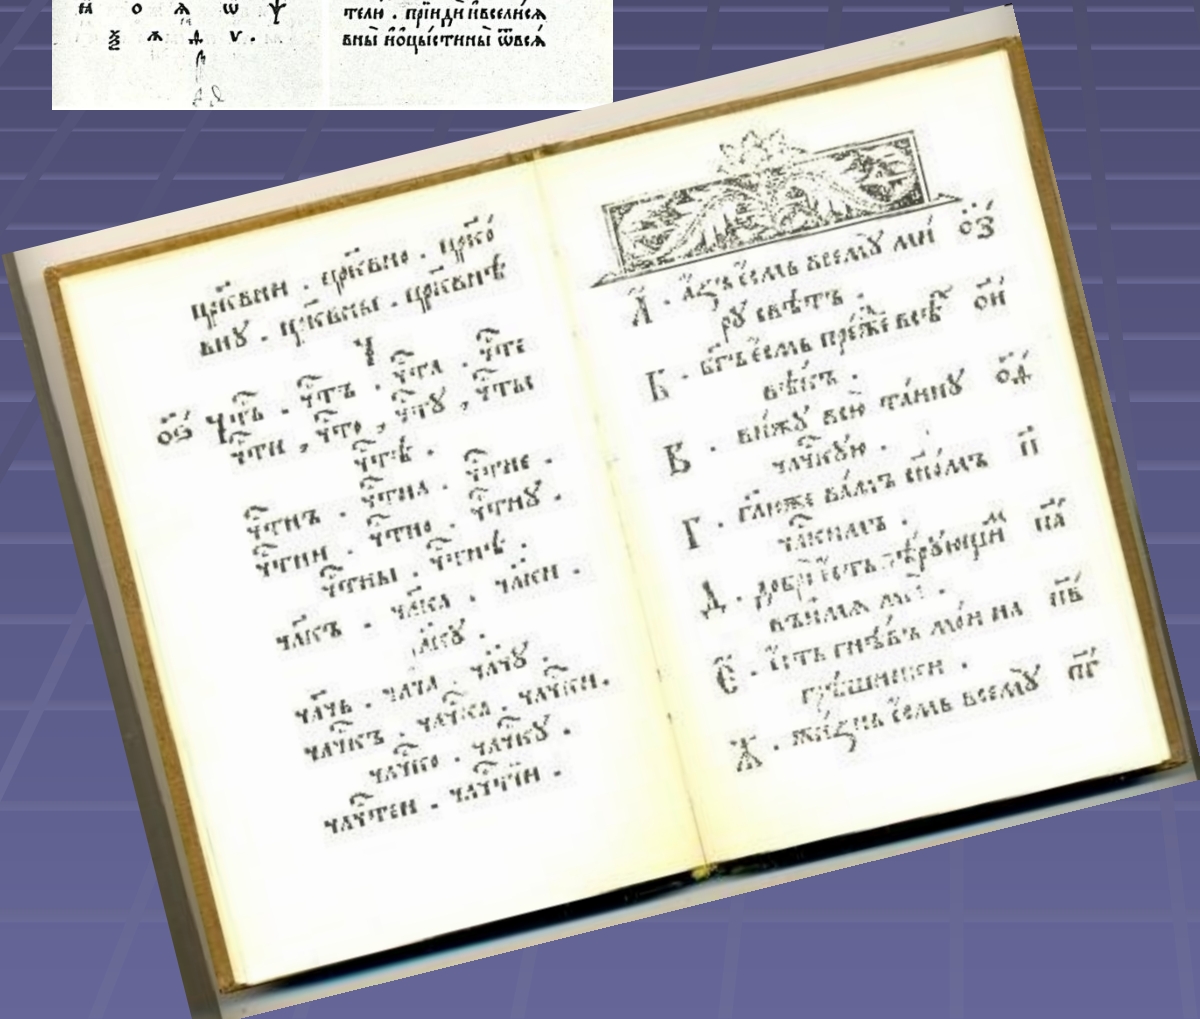 н о ѧ ѡ ѱ
ѯ ѧ д ѵ .
телю . прїиди и҆вселисѧ
вны и҆ѻцыстины ѿвсѧ
цр҃квни . цр҃квно . цр҃ко
вну . цр҃квны . цр҃квнѣ
Ч
чт҃ъ . чт҃ъ . чт҃а . чт҃е
чт҃и , чт҃о , чт҃у , чт҃ы
чт҃ѣ .
чт҃нъ . чт҃на . чт҃не .
чт҃ни . чт҃но . чт҃ну .
чт҃ны . чт҃нѣ .
чл҃къ . чл҃ка . чл҃ки .
чл҃ку .
чл҃чь . чл҃ча . чл҃чу .
чл҃чкъ . чл҃чка . чл҃чки .
чл҃чко . чл҃чку .
А҃ . а҆зъ є҆смь всемꙋ ми ѻ҃з
рꙋ свѣтъ .
Б . бг҃ъ є҆смь преже всѣ ѻ҃и
вѣкъ .
В . вижꙋ всю таинꙋ ѻ҃д
чл҃чкꙋю .
Г . гл҃юже вамъ сн҃омъ п҃
чл҃кимъ .
Д . добро є҆сть вѣрꙋющи п҃а
Є . є҆сть гнѣвъ мои на п҃в
грѣшники .
Ж . жизнь є҆смь всемꙋ п҃г